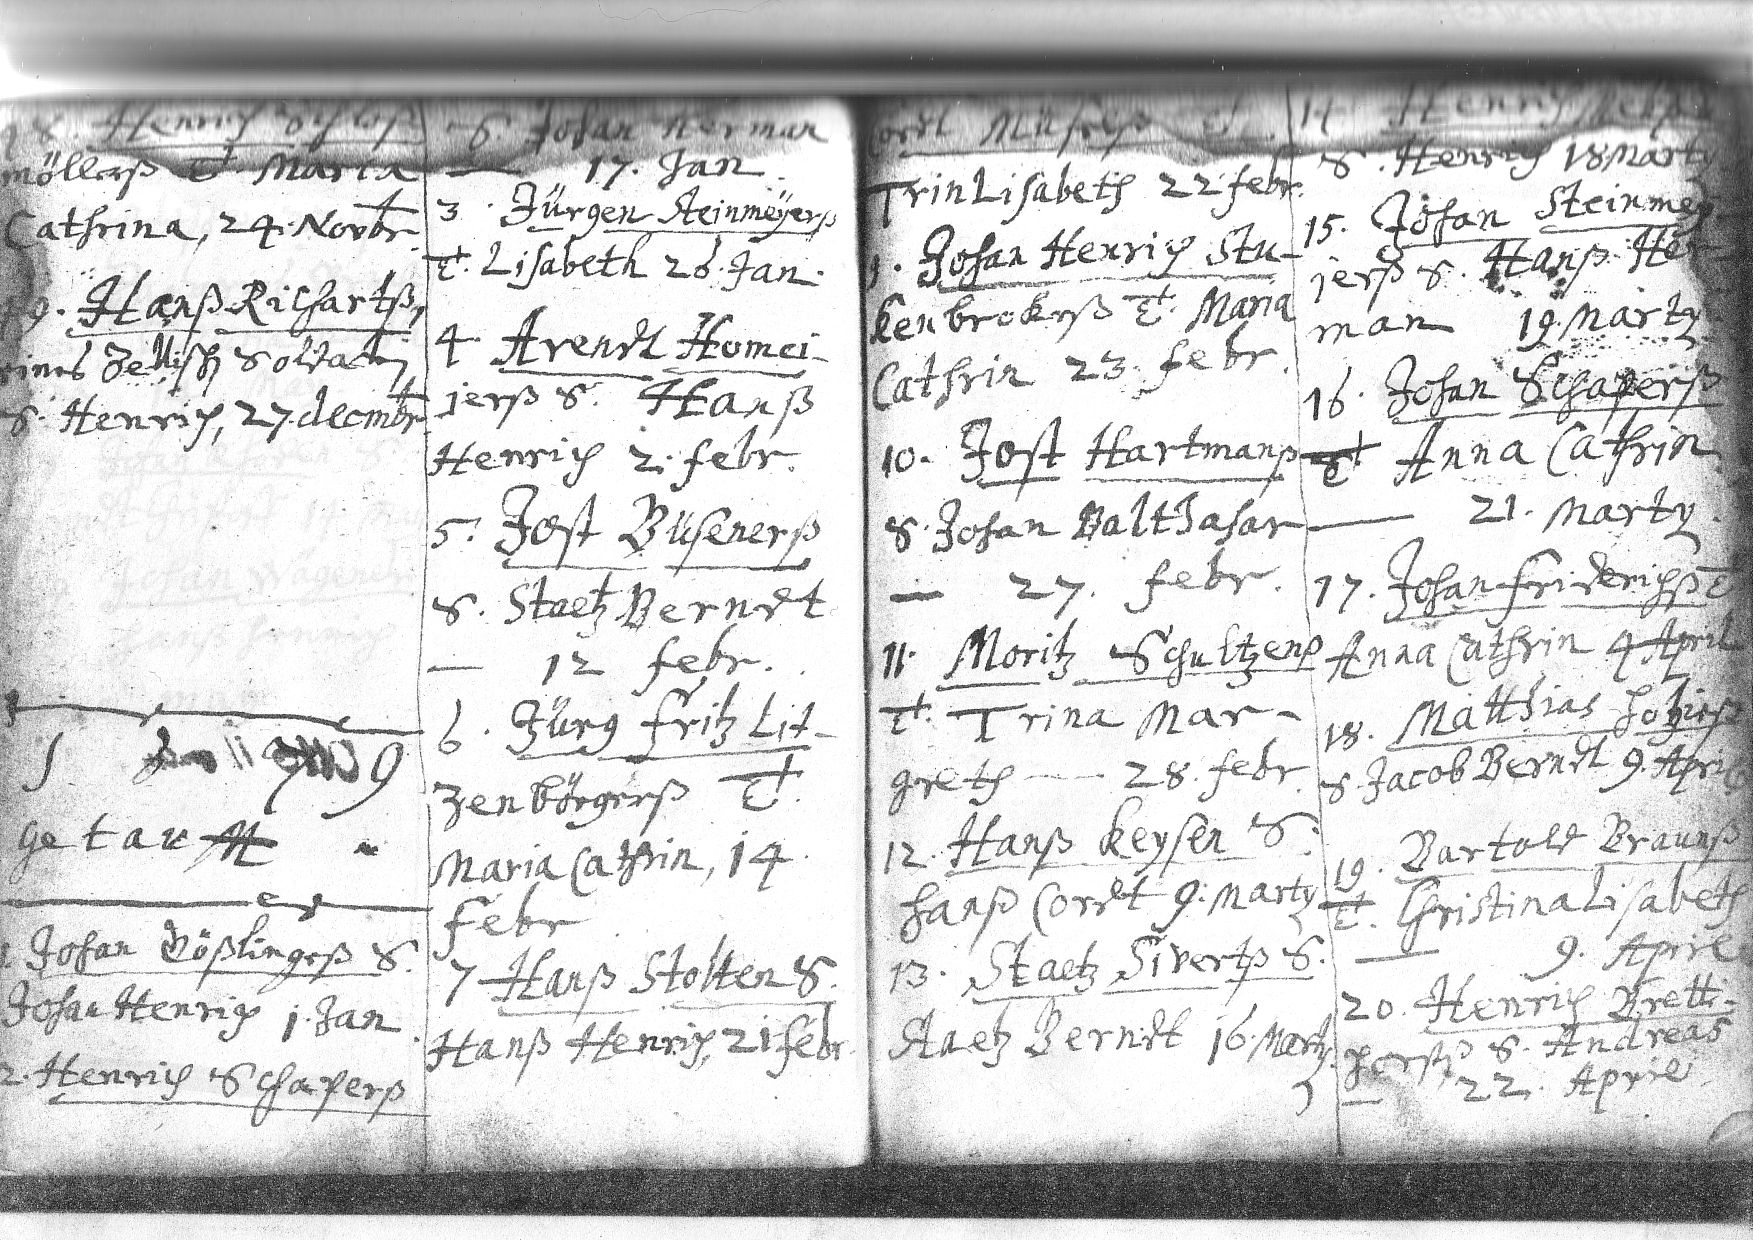 18. Henrich Schloß
möllerß T. Maria
Cathrina, 24. Novbr.
19. Hanß Richartß,
eines Zellisch Soldaten
S. Henrich, 27. decmbr
Anno
getauft
1. Johan Bößlingerß S.
Johan Henrich 1. Jan.
2. Henrich Schaperß
S. Johan Herman
— 17. Jan.
3. Jürgen Steinmeÿerß
T. Lisabeth 26. Jan.
4. Arendt Homei-
jerß S. Hanß
Henrich 2. febr.
5. Jost Büsenerß
S. Staetz Berndt
— 12 febr.
6. Jürg Fritz Lit-
zenbörgerß T.
Maria Cathrin, 14
Febr
7 Hanß Stolten S.
Hanß Henrich, 21 febr.
Cordt T.
TrinLisabeth 22 febr.
9. Johan Henrich Stu-
kenbrokerß T. Maria
Cathrin 23. febr.
10. Jost Hartmanß
S. Johan Balthasar
— 27. febr.
11. Moritz Schultzenß
T. Trina Mar-
greth — 28. febr.
12. Hanß Keysen S.
Hanß Cordt 9. Marty
13. Staetz Sivertß S.
Staetz Berndt 16. Marty.
14. Henrich
S. Henrich 18 Marty
15. Johan Steinmey-
jerß S. Hanß Her-
man 19. Marty.
16. Johan Schaperß
T. Anna Cathrin
— 21. Marty.
17. Johan Friderichß T.
Anna Cathrin 4 April
18. Matthias
S. Jacob Berndt 9. April
19. Bartold Braunß
T. Christina Lisabeth
— 9. April
20. Henrich Bretti-
S. Andreas
— 22. April